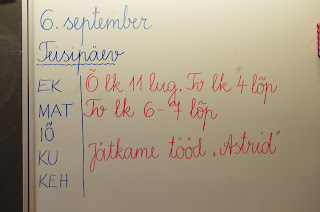 6. september
Teisipäev
EK Õ lk 11 lug. Tv lk 4 lõp
MAT Tv lk 6-7 lõp
IÕ
KU Jätkame tööd „Astrid"
KEH